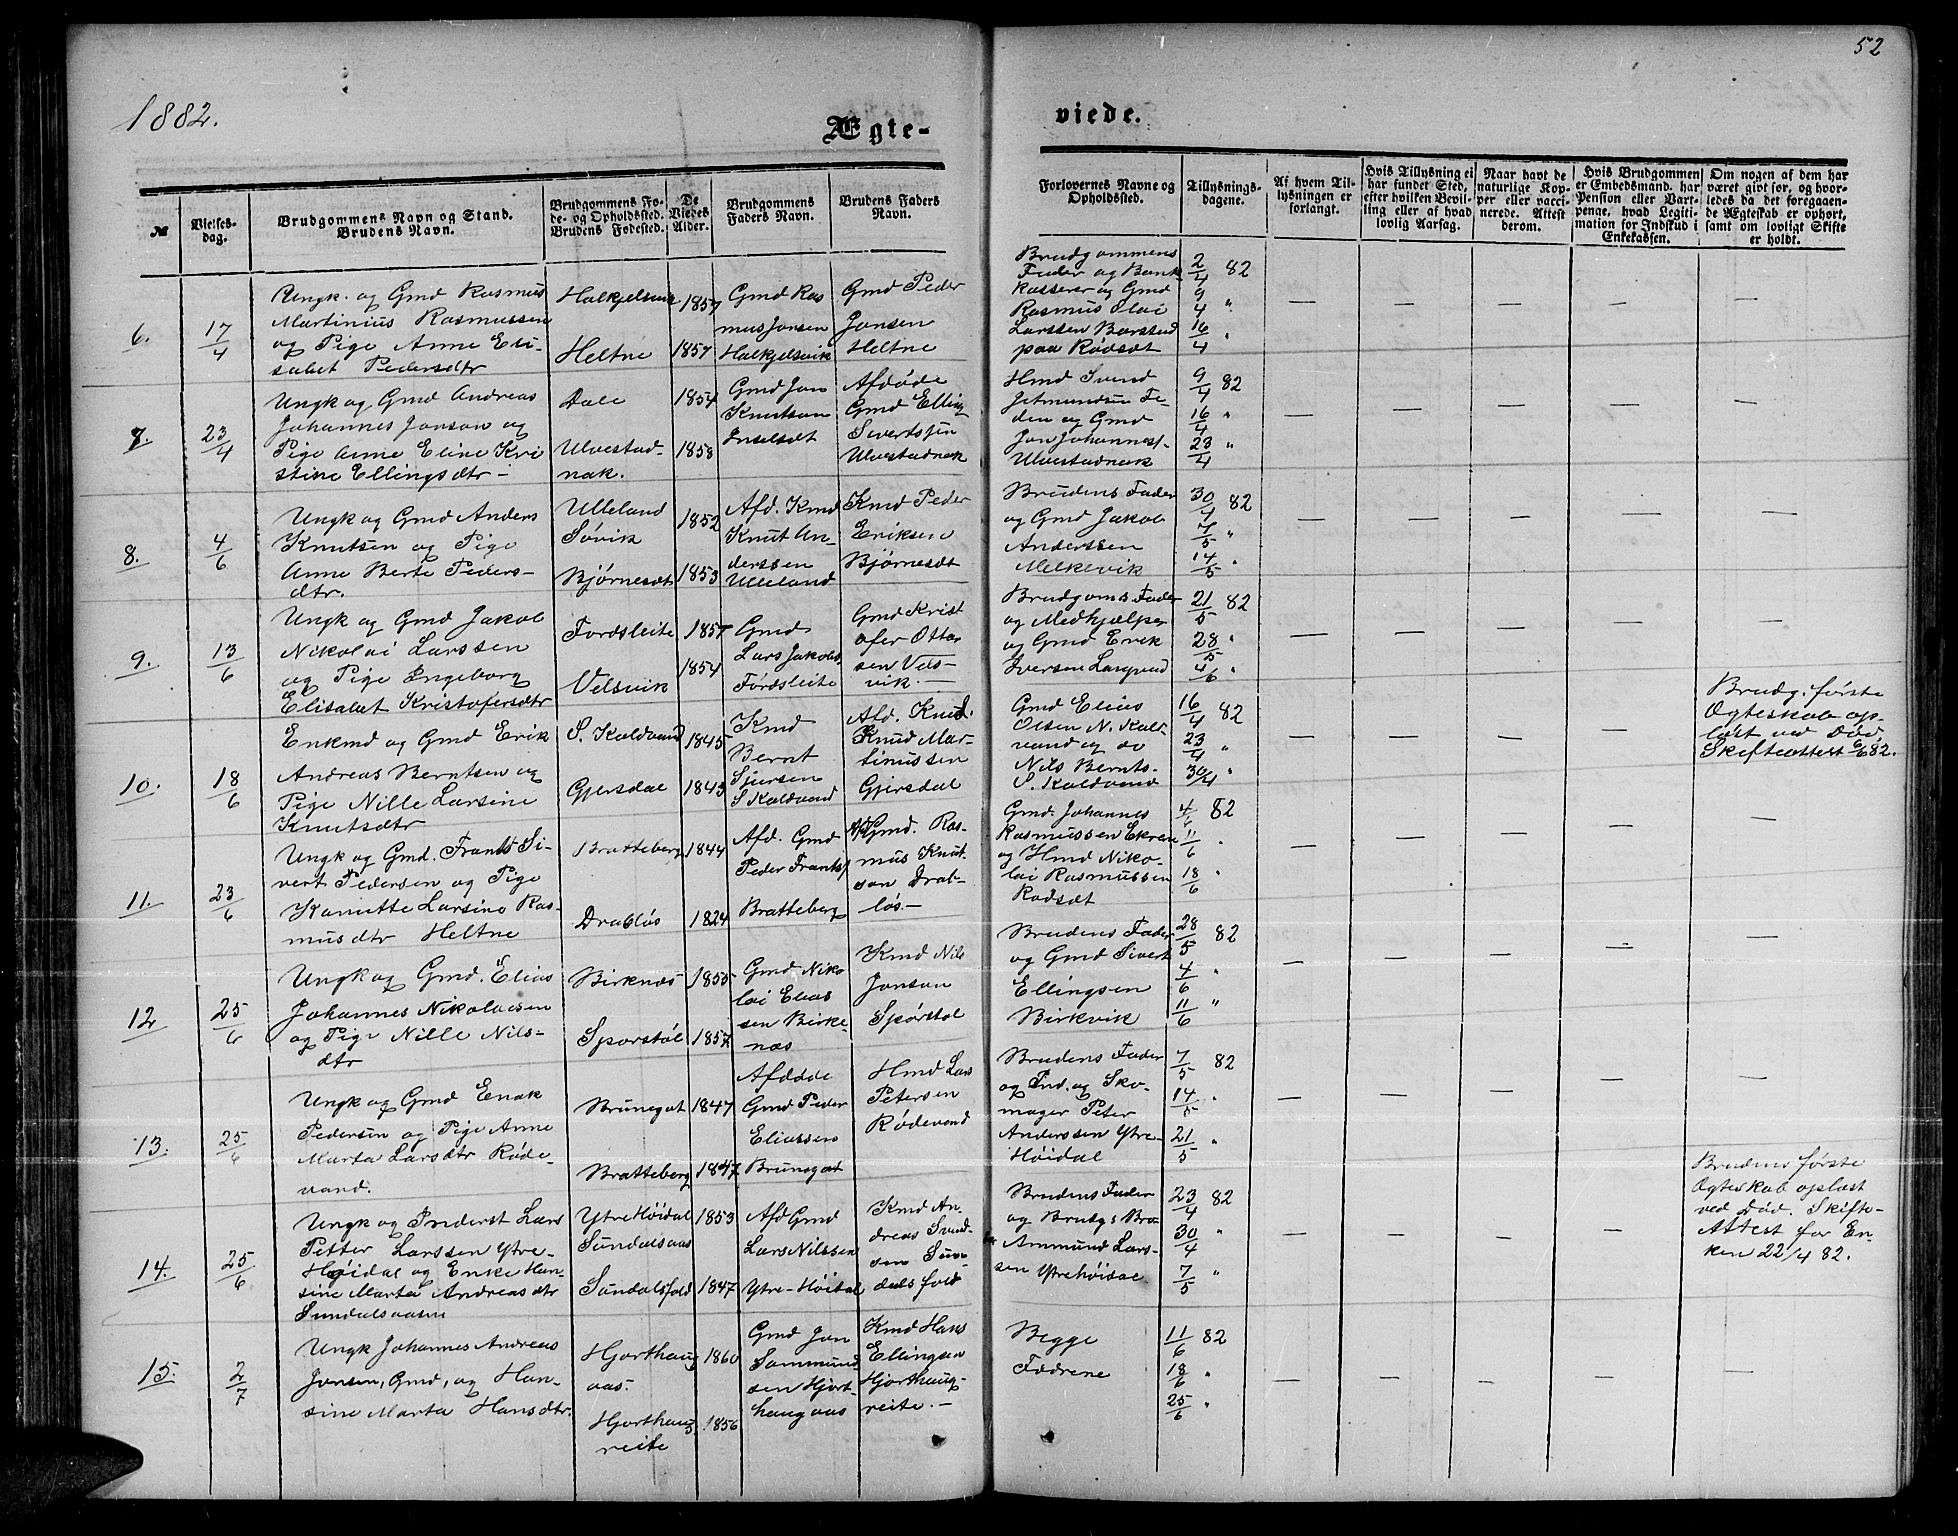 52
1882.
Ægte-
viede.
№
Vielses-
dag.
Brudgommens Navn og Stand.
Brudens Navn.
Brudgommens Fø-
de- og Opholdssted.
Brudens Fødested.
De
Viedes
Alder.
Brudgommens
Faders Navn.
Brudens Faders
Navn.
Forlovernes Navne og
Opholdssted.
Tillysnings-
dagene.
Af hvem Til-
lysningen er
forlangt.
Hvis Tillysning ei
har fundet Sted,
efter hvilken Bevil-
ling eller af hvad
lovlig Aarsag.
Naar havt de
naturlige Kop-
per eller vacci-
nerede. Attest
derom.
Hvis Brudgommen
er Embedsmand, har
Pension eller Vart-
penge, hvad Legiti-
mation for Indskud i
Enkekassen.
Om nogen af dem har
været givt før, og hvor-
ledes da det foregaaen-
de Ægteskab er ophørt,
samt om lovligt Skifte
er holdt.
6.
17/4
Ungk. og Gmd Rasmus
Martinius Rasmussen
og Pige Anne Eli-
sabet Pedersdtr
Halkjelsvik
Heltne
1857
1857
Gmd Ras
mus Jonsen
Halkjelsvik
Gmd Peder
Jonsen
Heltne
Brudgommens
Fader og Bank
kasserer og Gmd
Rasmus Elai
Larssen Barstad
paa Rødsæt
2/4 82
9/4 "
16/4 "
7.
23/4
Ungk og Gmd Andreas
Johannes Jonson og
Pige Anne Eline Kri
stine Ellingsdtr
Dale
Ulvestad-
nak.
1854
1858
Gmd Jon
Knutson
Inselsæt
Afdøde
Gmd Elling
Sivertsen
Ulvestadnak
Hmd Svend
Jetmundsen Fe-
den og Gmd
Jon Johannes
Ulvestadnak
9/4 82
16/4 "
23/4 "
8.
4/6
Ungk og Gmd Anders
Knutsen og Pige
Anne Berte Peders-
dtr.
Ulleland
Søvik
Bjørnesæt
1852
1853
Afd. Kmd
Knut An-
derssen
Ulleland
Kmd Peder
Eriksen
Bjørnesæt
Brudens Fader
og Gmd Jakob
Anderssen
Melkevik
30/4 82
7/5 "
14/5 "
9.
13/6
Ungk og Gmd Jakob
Nikolai Larssen
og Pige Ingeborg
Elisabet Kristofersdtr
Fordsleite
Velsvik
1857
1854
Gmd
Lars Jakobs
Førdsleite
Gmd Krist
ofer Otto
sen Vels-
vik.
Brudgoms Fader
og Medhjælper
og Gmd Erik
Iversen
21/5 82
28/5 "
4/6 "
10.
18/6
Enkmd og Gmd Erik
Andreas Berntsen og
Pige Nille Larsine
Knutsdtr
S. Kaldvand
Gjersdal
1845
1843
Kmd
Bernt
Sjursen
S Kaldvand
Afd.
Knud Mar-
tinussen
Gjersdal
Gmd Elias
Olsen N. Kald
vand og do
Nils Bernts-
S. Kaldvand
16/4 82
23/4 "
30/4 "
Brudg. første
Ægteskab op-
løst ved Død
Skifteattest 6/6 82.
11.
23/6
Ungk og Gmd. Frants Si-
vert Pedersen og Pige
Kanutte Larsine Ras-
musdtr Heltne
Bratteberg
Drabløs
1844
1824
Afd. Gmd
Peder Frants
Bratteberg
Afd Gmd. Ras-
mus Knut-
son Drab-
løs.
Gmd. Johannes
Rasmussen Ekrene
og Hmd Niko-
lai Rasmussen
Rødsæt
4/6 82
11/6 "
18/6 "
12
25/6
Ungk og Gmd. Elias
Johannes Nikolaisen
og Pige Nille Nils-
dtr
Birknæs
Sporstøl
1855
1857
Gmd Niko
lai Elias
sen Birke-
næs
Kmd Nils
Jonson
Spørstøl
Brudens Fader
og Gmd Sivert
Ellingsen
Birkvik
28/5 82
4/6 "
11/6 "
13.
25/6
Ungk og Gmd Enok
Pedersen og Pige Anne
Marta Larsdtr Røde-
vand.
Brunegot
Bratteberg
1847
1847
Afdøde
Gmd Peder
Eliassen
Brunegot
Hmd Lars
Petersen
Rødevand
Brudens Fader
og Ind. og Sko-
mager Peter
Anderssen Ytre-
Høidal
7/5 82
14/5 "
21/5 "
14.
25/6
Ungk og Inderst Lars
Petter Larssen Ytre-
Høidal og Enke Han-
sine Marta Andreasdtr
Sundalsaasen
Ytre Høidal
Sundalsaas
Sundalsfold
1853
1847
Afd Gmd
Lars Nilssen
Ytre-Høidal
Kmd An-
dreas Svend-
sen Sun-
dalsfold
Brudens Fader
og Brudgs Bro
Ammund Lars-
sen Ytrehöidal
23/4 82
30/4 "
7/5 "
Brudens første
Ægteskab opløst
ved Død. Skifte-
Attest for En-
ken 22/4 82.
15.
2/7
Ungk Johannes Andreas
Jonsen, Gmd, og Han-
sine Marta Hansdtr.
Hjorthaug
aas.
Hjorthaug
reite
1860
1856
Gmd Jon
Sammund
sen Hjort
haugaas
Kmd Hans
Ellingsen
Hjorthaug-
reite.
Begge
Fædrene
11/6 82
18/6 "
25/6 "